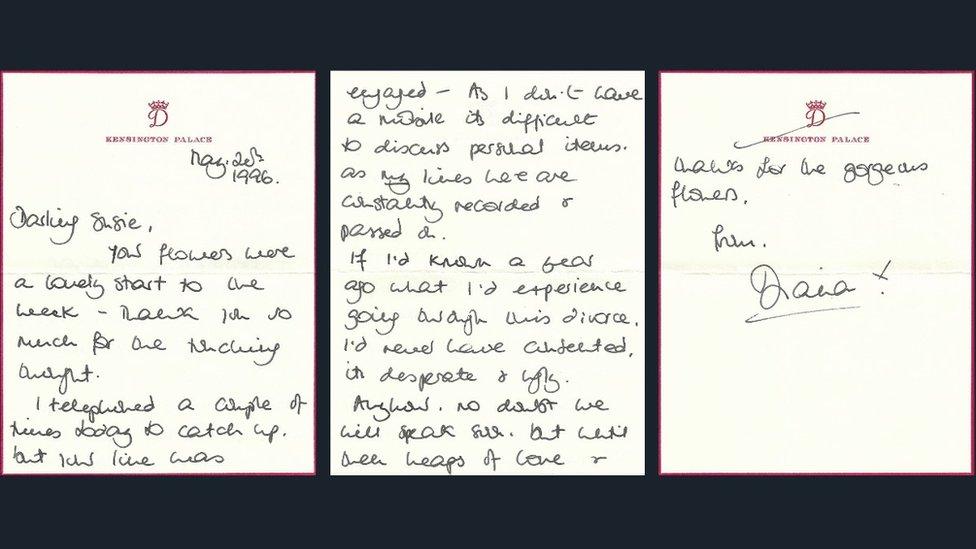 D
KENSINGTON PALACE
May. 20th
1996.
Darling Susie,
Your flowers were
a lovely start to the
week - Thank you so
much for the touching
thought.
I telephoned a couple of
times today to catch up,
but your line was
engaged - As I don't have
a mobile its difficult
to discuss personal items.
as my lines here are
constantly recorded &
passed on.
If I'd known a year
ago what I'd experience
going through this divorce,
I'd never have consented,
its desperate & ugly.
Anyhow. no doubt we
will speak soon. but until
then heaps of love &
D
KENSINGTON PALACE
thanks for the gorgeous
flowers,
from.
Diana x